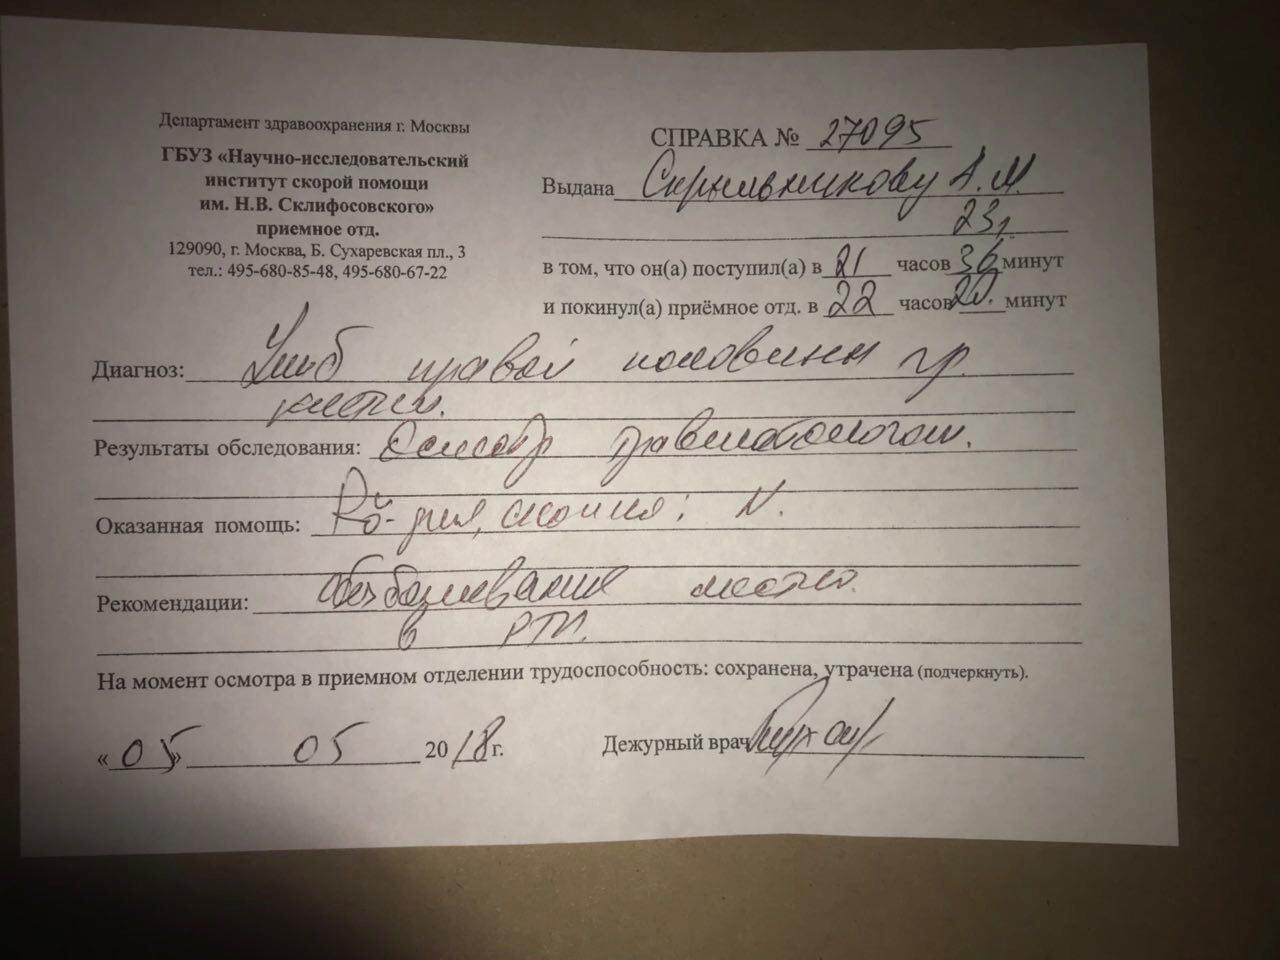 Департамент здравоохранения г. Москвы
ГБУЗ «Научно-исследовательский
институт скорой помощи
им. Н.В. Склифосовского»
приемное отд.
129090, г. Москва, Б. Сухаревская пл., 3
тел.: 495-680-85-48, 495-680-67-22
СПРАВКА № 27095
Выдана Скрыльникову А.М.
23г.
в том, что он(а) поступил(а) в 21 часов 36 минут
и покинул(а) приёмное отд. в 22 часов 20. минут
Диагноз: Ушиб правой половины гр.
клетки.
Результаты обследования: Осмотр травматологом.
Оказанная помощь: N.
Рекомендации: обезболивание местно.
На момент осмотра в приемном отделении трудоспособность: сохранена, утрачена (подчеркнуть).
«05» 05 2018г.
Дежурный врач